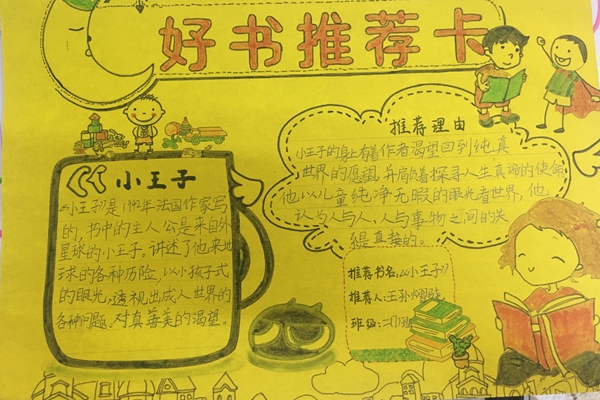 好书推荐卡
小王子
《小王子》是1942年法国作家写
的,书中的主人公是来自外
星球的小王子。讲述了他来地
球的各种历险,以小孩子式
的眼光,透视出成人世界的
各种问题。对真善美的渴望。
推荐理由
小王子的身上有着作者渴望回到纯真
世界的愿望,并肩负着探寻人生真谛的使命
他以儿童纯净无暇的眼光看世界,他
认为人与人,人与事物之间的关
是直接的
推荐书名:《小王子》
推荐人:王孙
班级:二(1)班